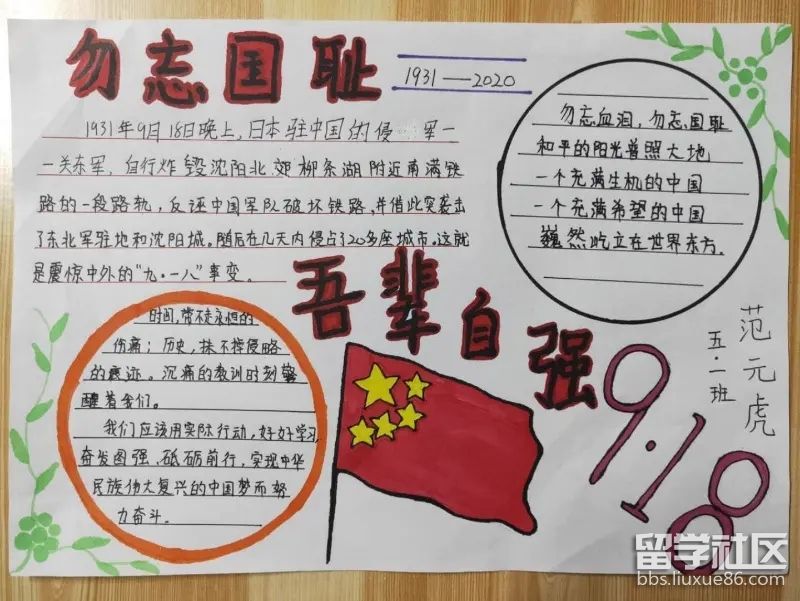 勿志国耻
1931—2020
1931年9月18日晚上,日本驻中国的侵 军一
一关东军,自行炸毁沈阳北郊柳条湖附近南满铁
路的一段路轨,反诬中国军队破坏铁路,并借此突袭击
了东北军驻地和沈阳城。随后在几天内侵占了20多座城市。这就
是震惊中外的“九·一八”事变。
勿忘血泪,勿忘国耻
和平的阳光普照大地
一个充满生机的中国
一个充满希望的中国
巍然屹立在世界东方。
吾辈自强
时间,带不走永恒的
伤痛;历史,抹不掉侵略
的痕迹。沉痛的教训时刻警
醒着我们。
我们应该用实际行动,好好学习,
奋发图强、砥砺前行,实现中华
民族伟大复兴的中国梦而努
力奋斗。
范元虎
五·一班
9·18
留学社区
bbs.liuxue86.com